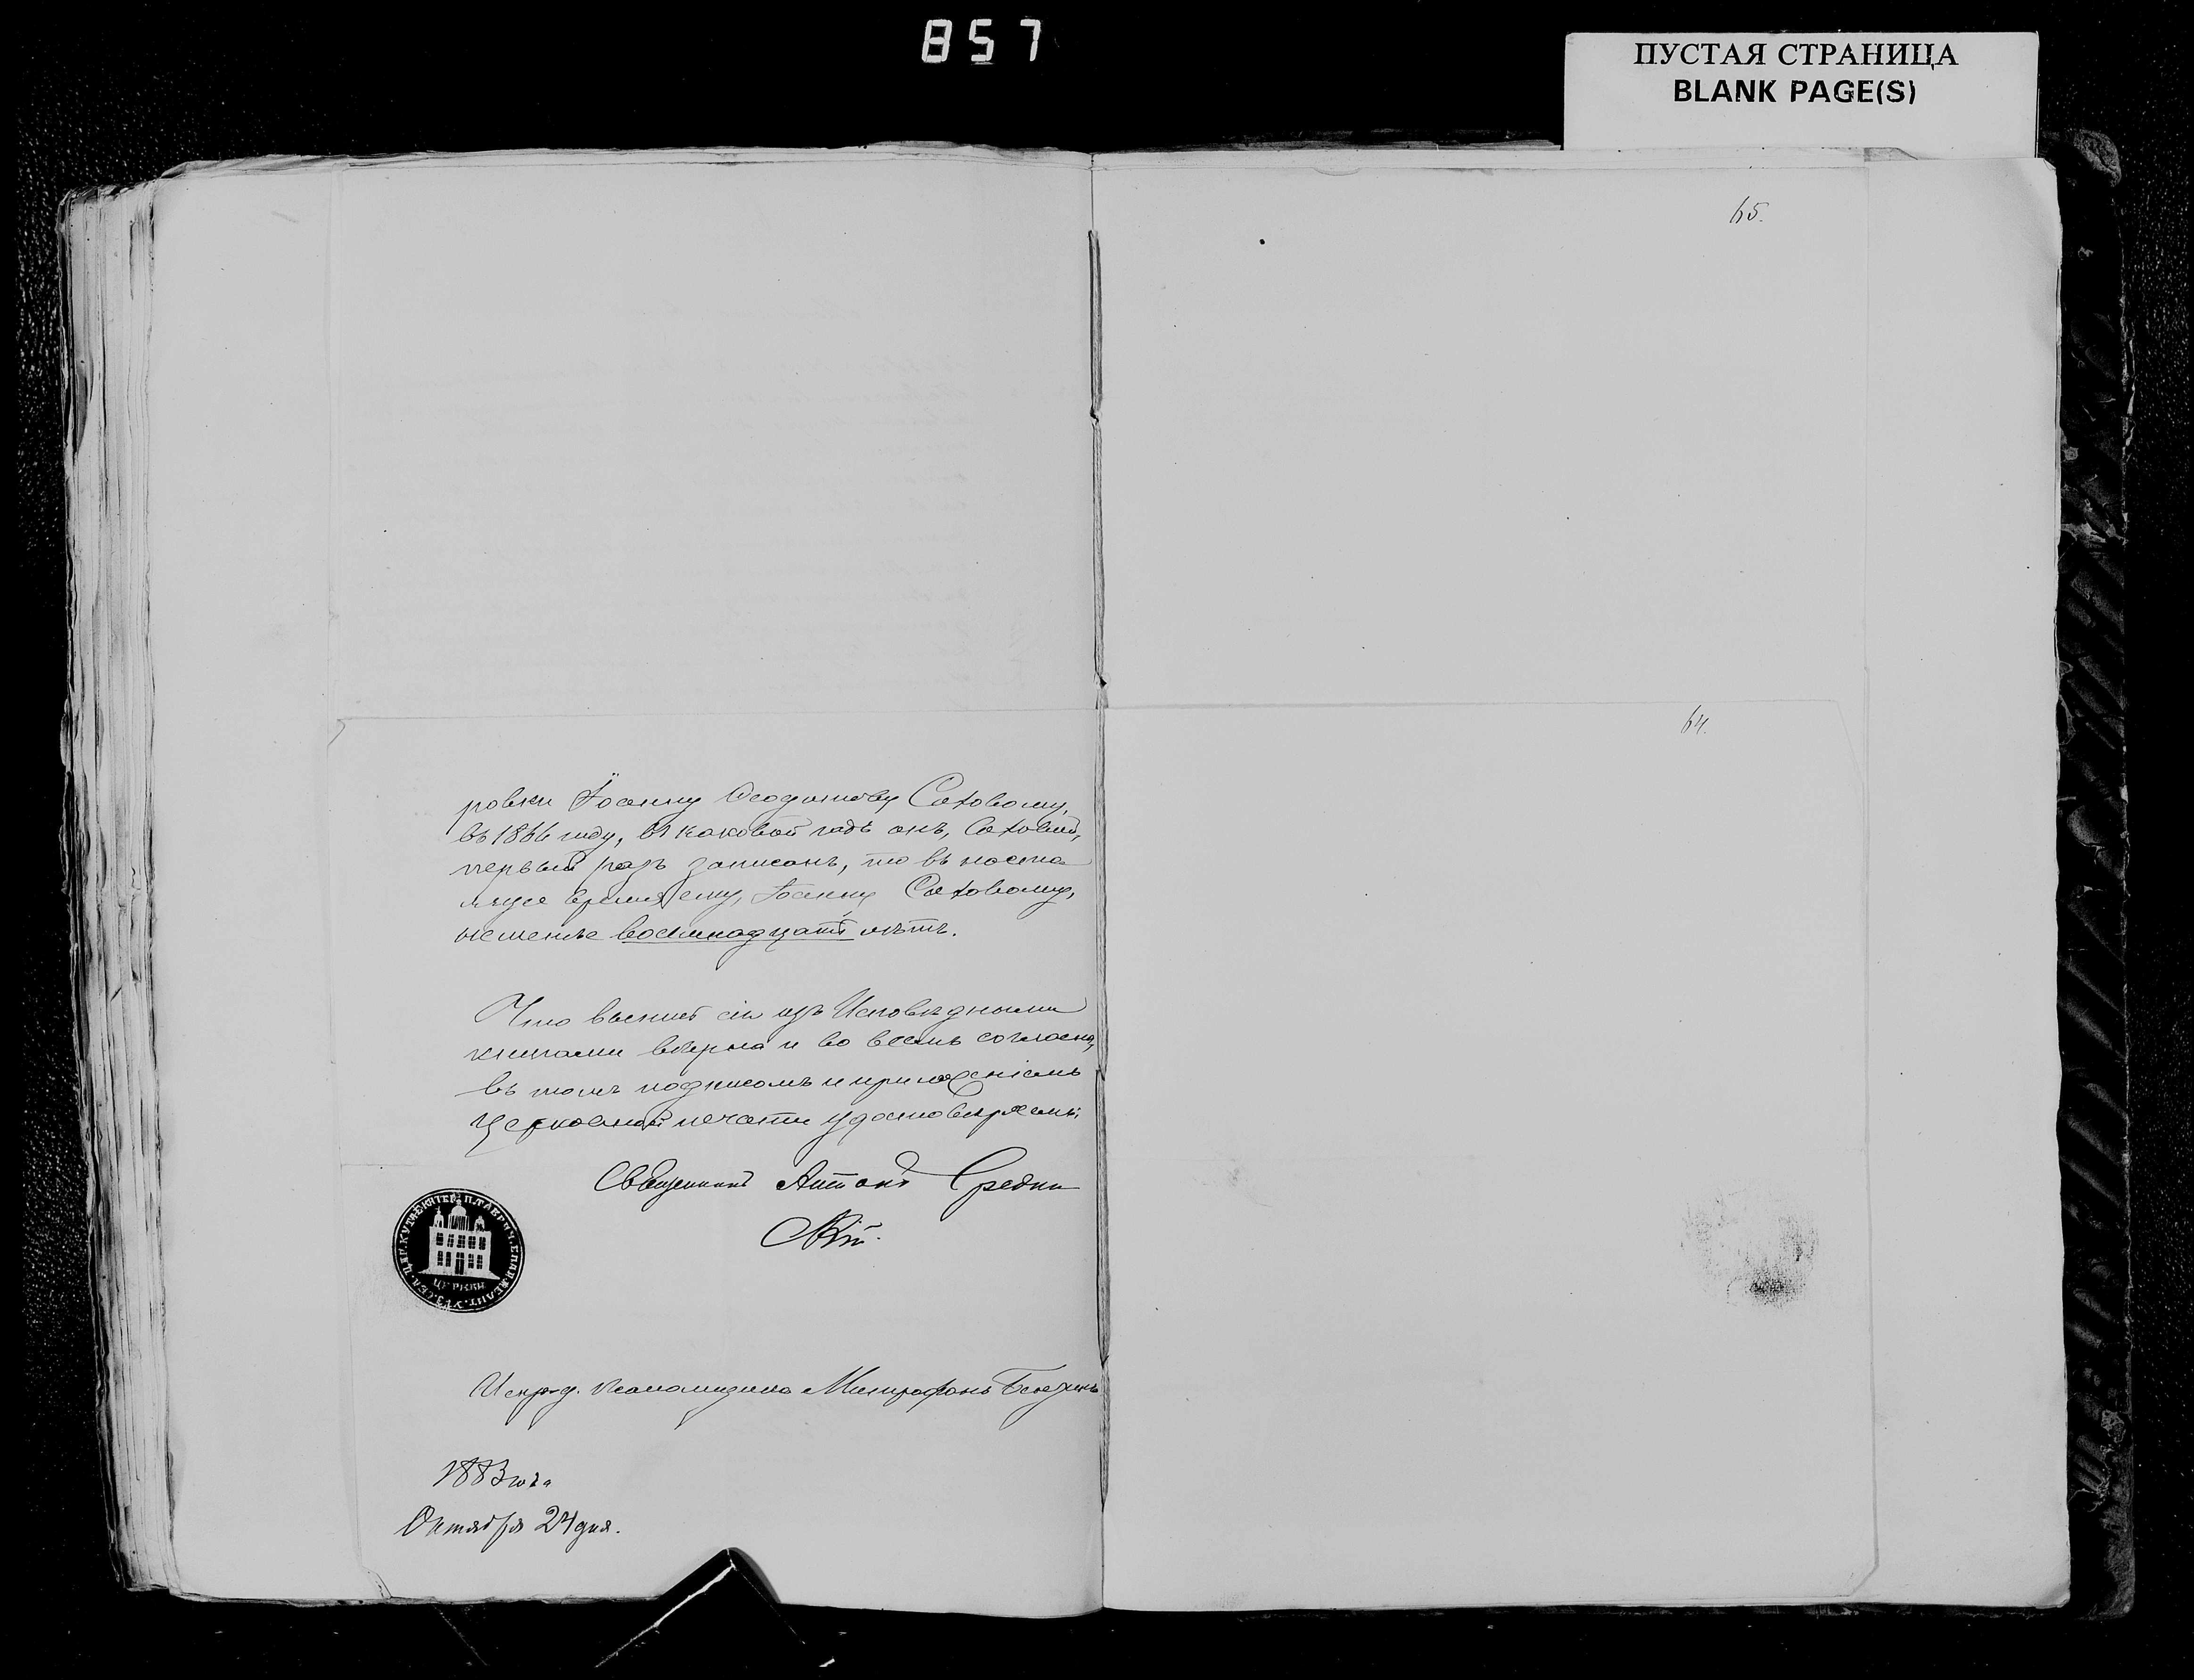 857
ПУСТАЯ СТРАНИЦА
BLANK PAGE(S)
65.
64.
ровки Іоанну Ѳеодотову Саховому,
въ 1866 году, въ каковой годъ онъ, Саховый,
первый разъ записанъ, то въ настоя
щее время ему, Іоанну Саховому,
не менѣе восемнадцати лѣтъ.
Что выпись сія съ Исповѣдными
книгами вѣрна и во всемъ согласна,
въ томъ подписомъ и приложеніемъ
церковной печати удостовѣряемъ:
Священникъ Антоній
Испр. д. псаломщика Митрофанъ
ЦЕРКВИ
1883 года
Октября 24 дня.